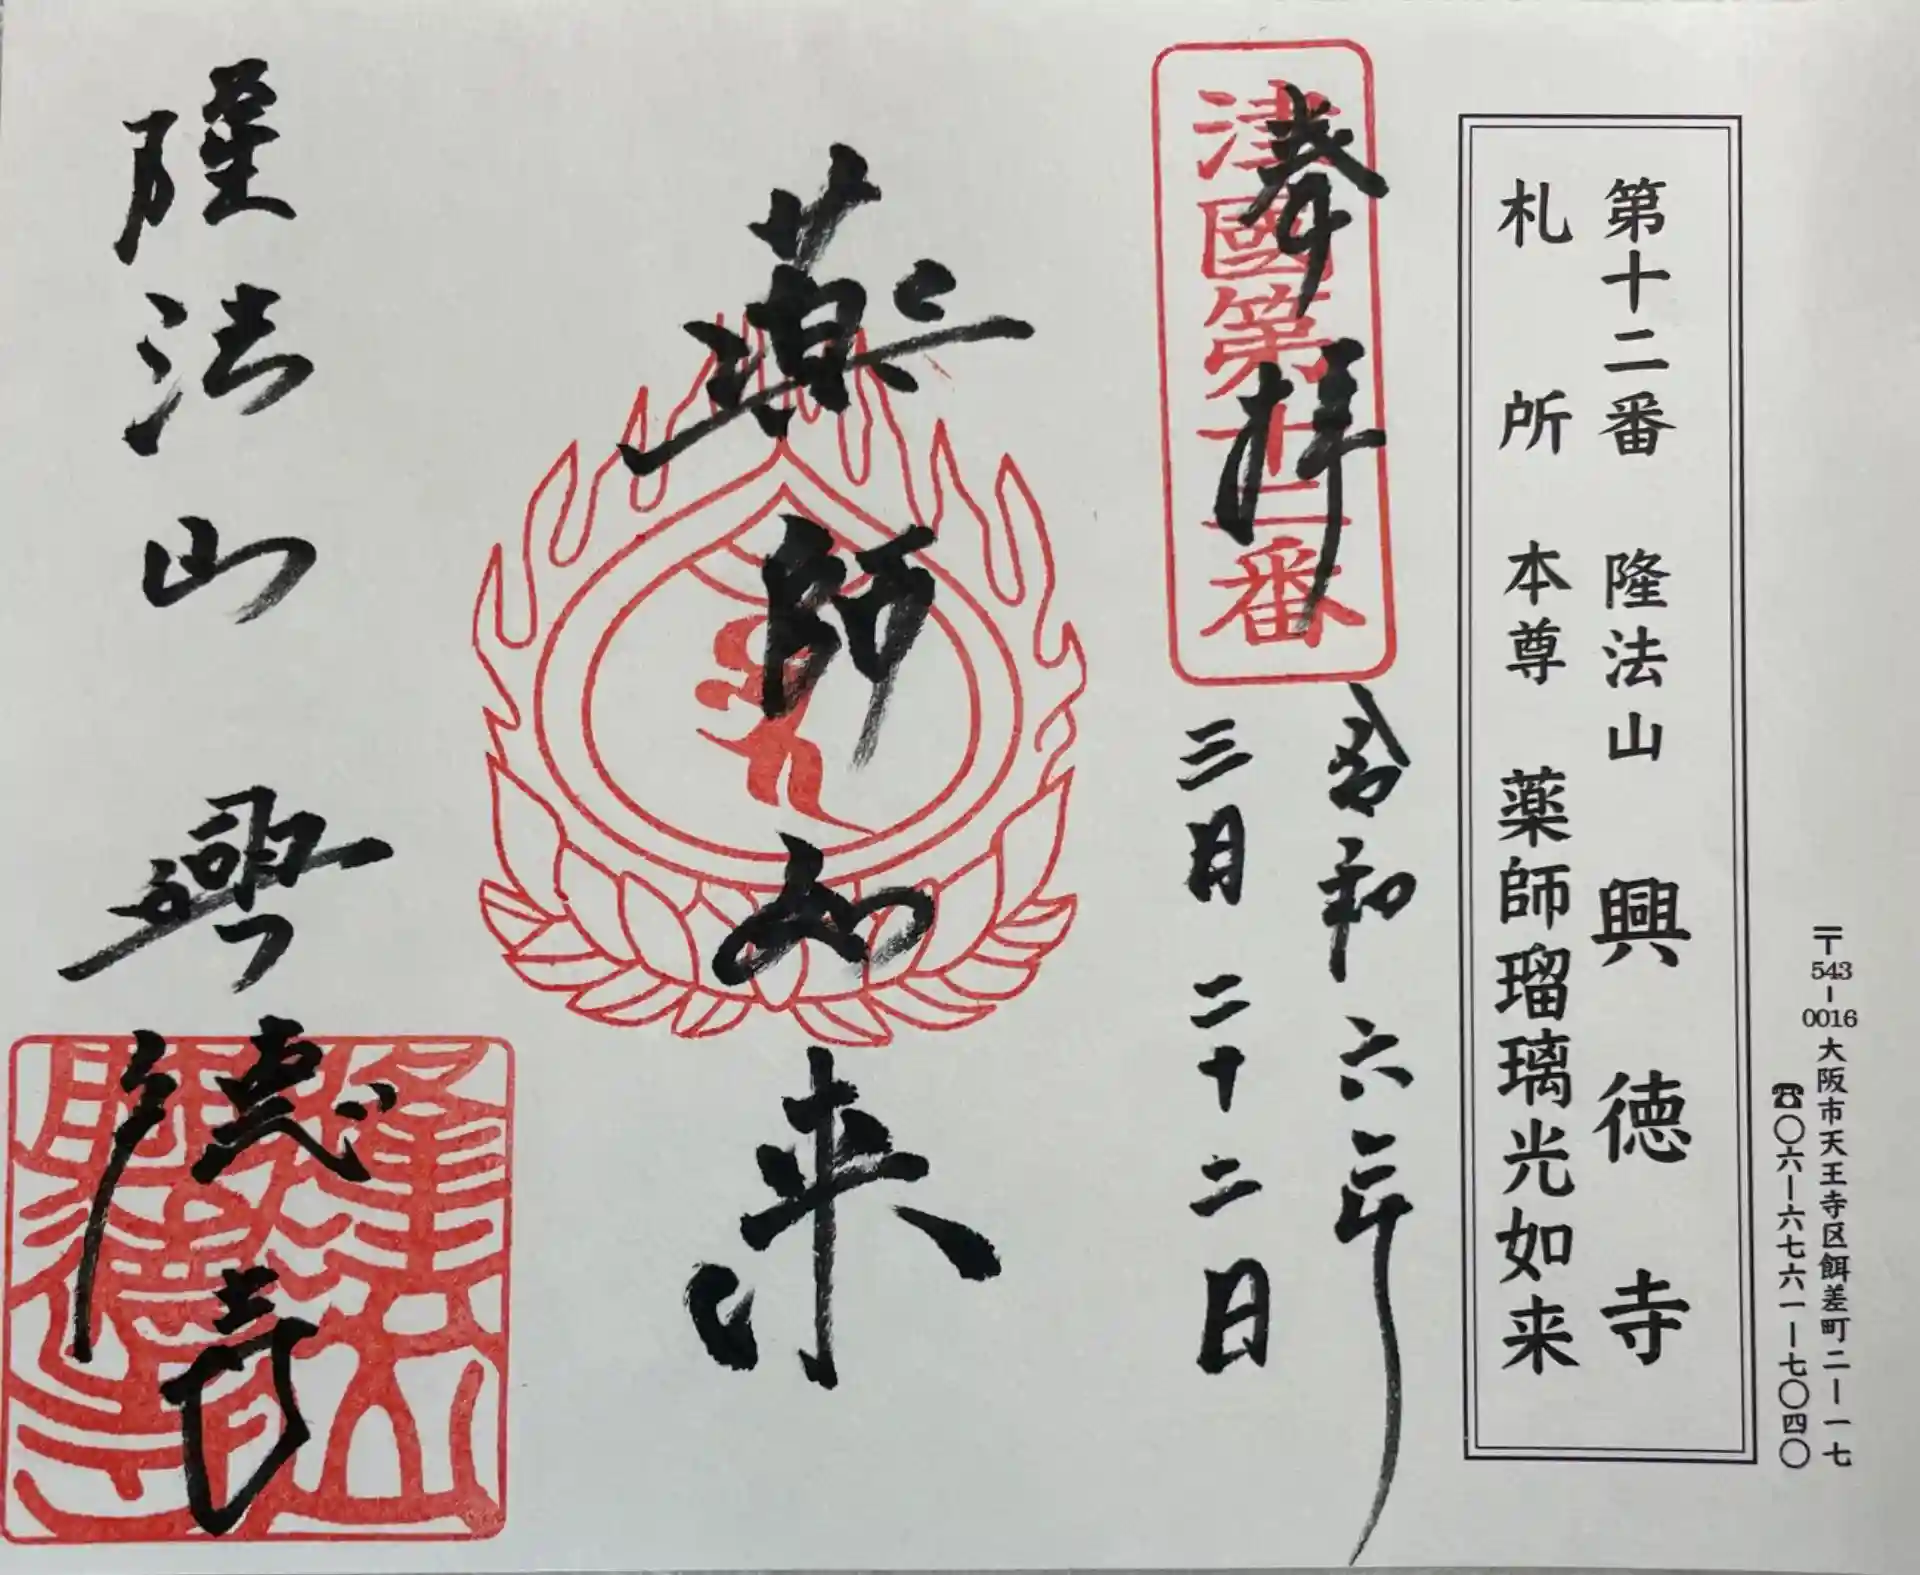 〒543-0016 大阪市天王寺区餌差町二ー一七
☎〇六ー六七六一ー七〇四〇
第十二番 隆法山 興徳寺
札所 本尊 薬師瑠璃光如来
奉拝
津國第十二番
令和六年
三月二十二日
薬師如来
隆法山 興徳寺